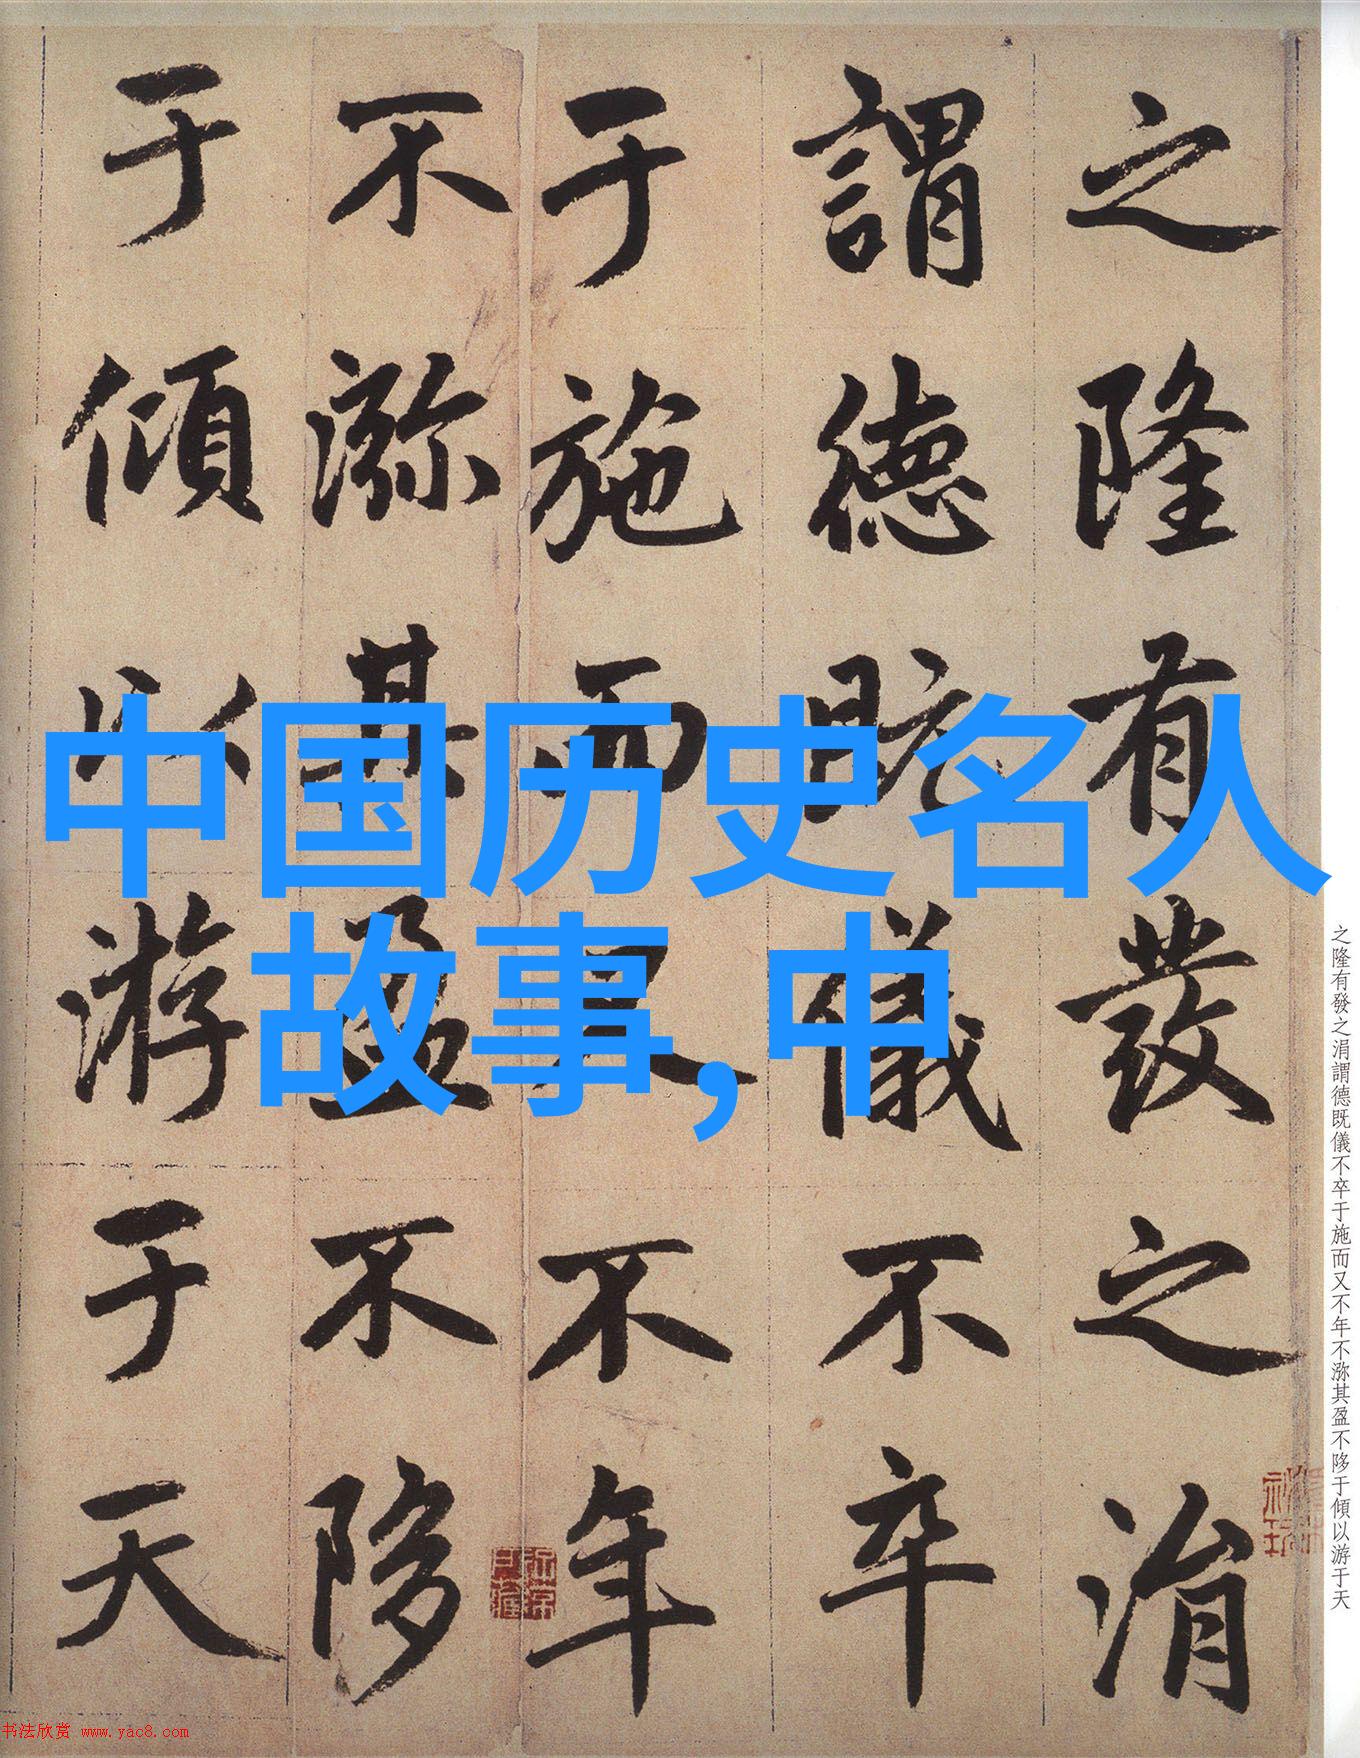 之隆有發之涓
謂德既儀不卒
于施而又不年
不㳽其盈不陊
于傾以游于天
中国历史名人
故事,中
之隆有發之涓謂德既儀不卒于施而又不年不㳽其盈不陊于傾以游于天
书法欣赏 www.yac8.com